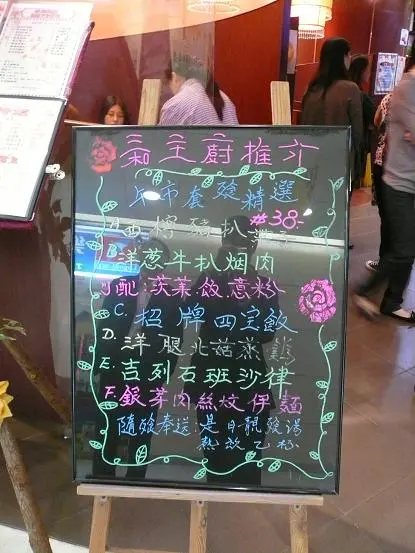 三和主廚推介
午市套飱精選
A. 西檸豬扒 #38.-
B. 洋葱牛扒烟肉
可配:菠菜飯意粉
C. 招牌四宝飯
D. 洋腿北菇蒸雞
E. 吉列石班沙律
F. 銀芽肉絲炆伊麵
隨飱奉送:是日靚飱湯
熱飲乙杯